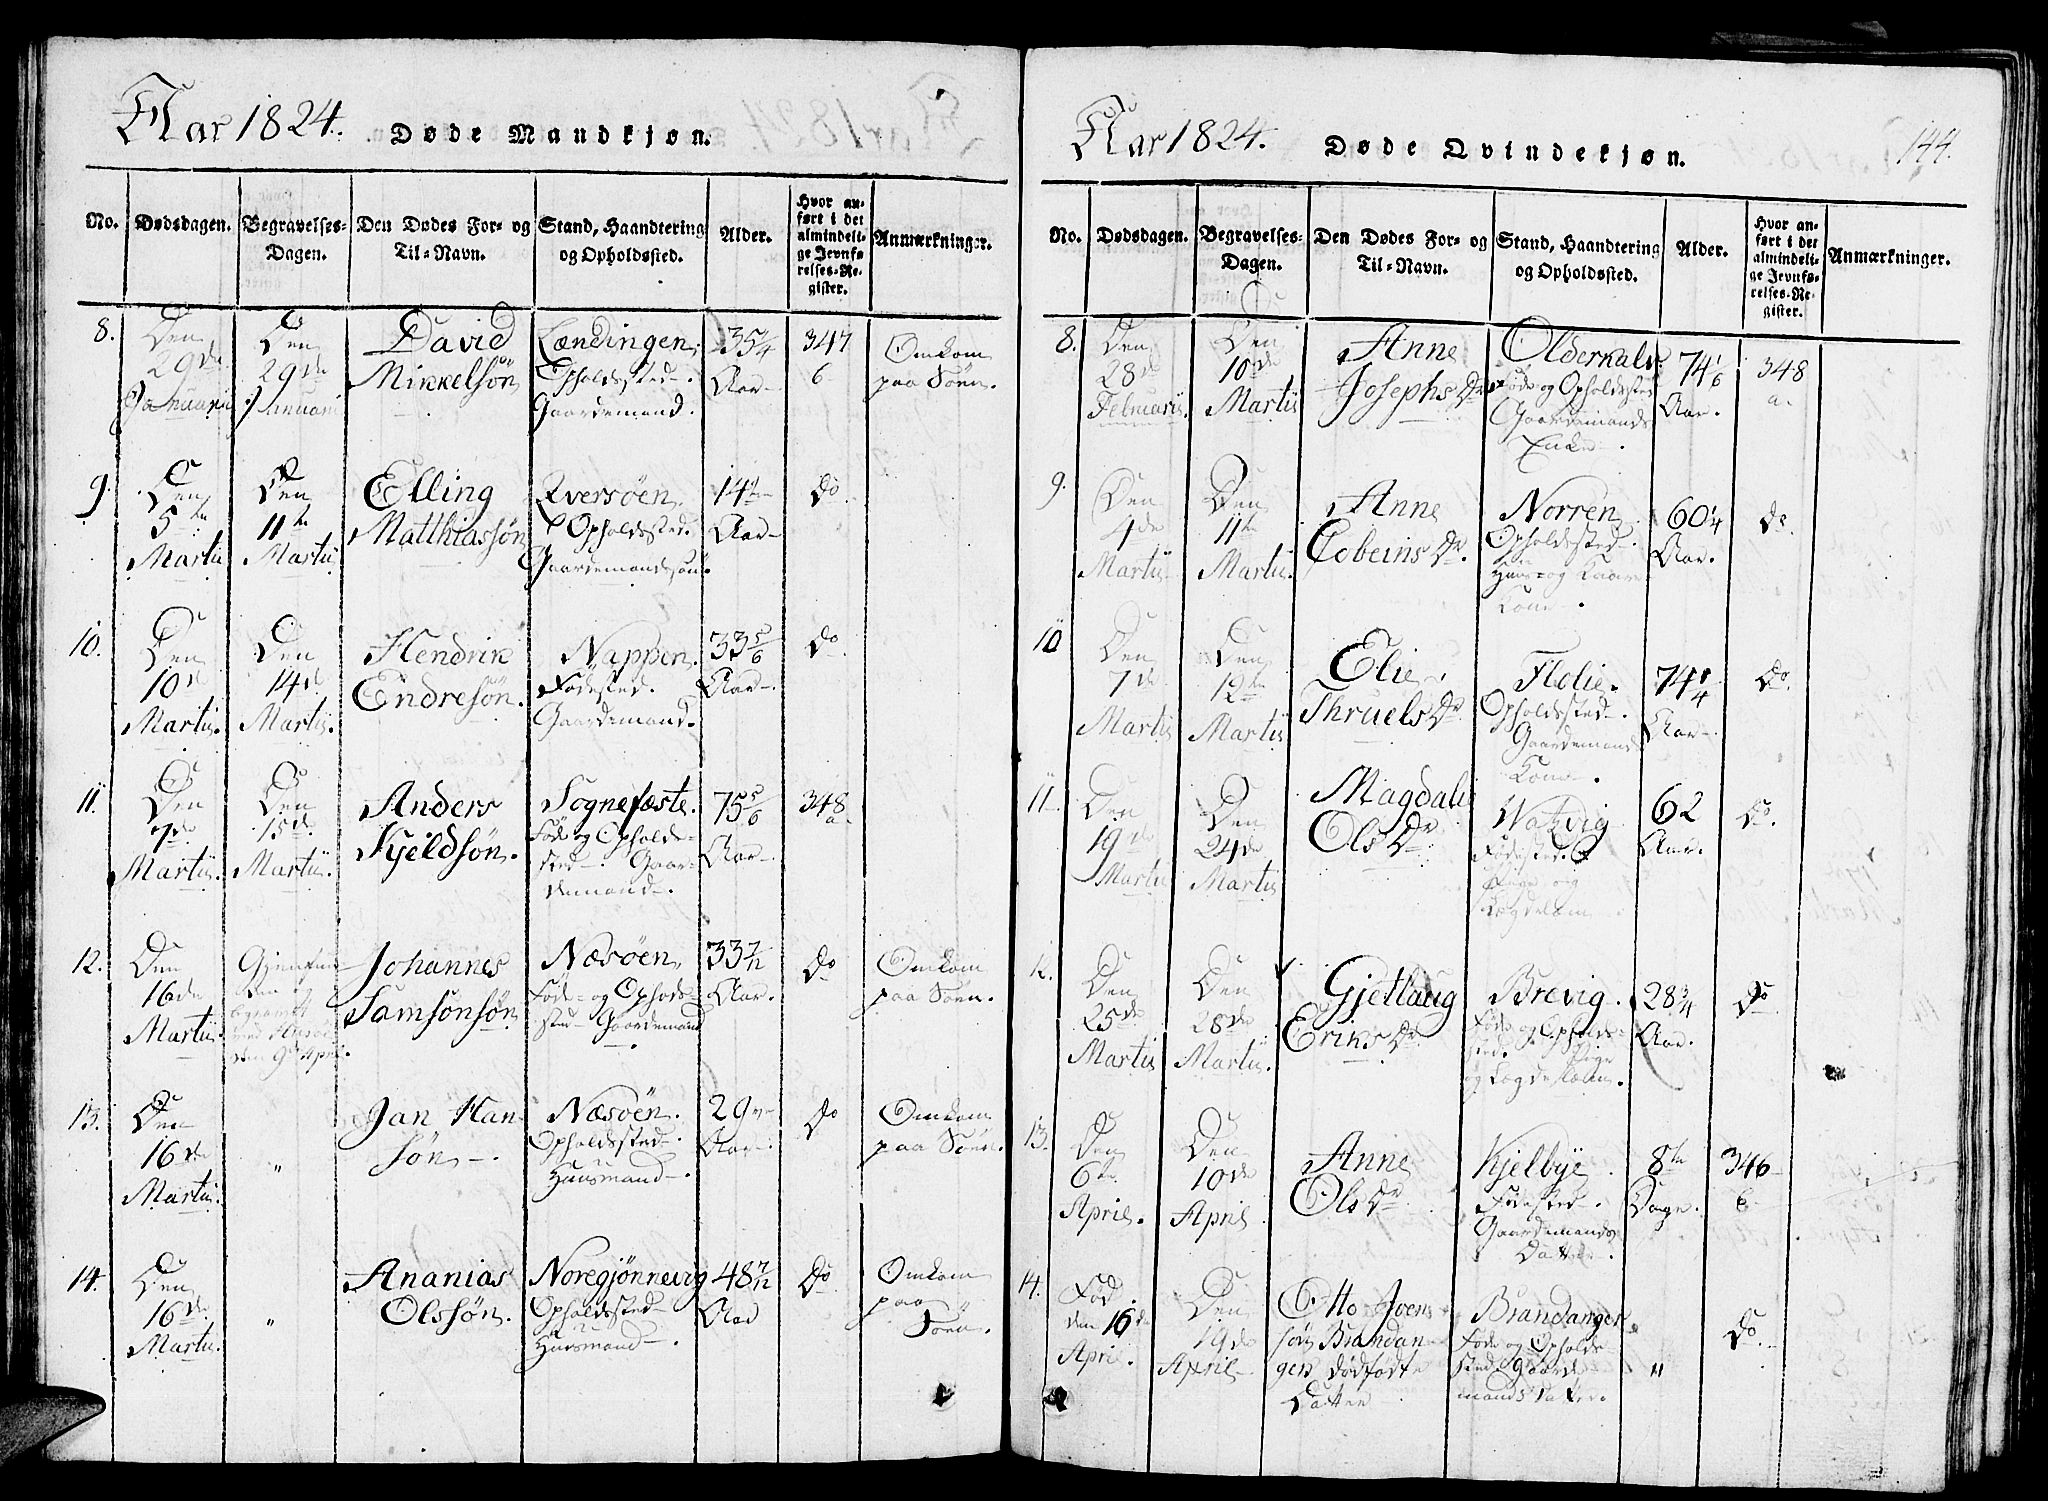 Aar 1824. Døde Mandkjøn.
No. Dødsdagen. Begravelses-Dagen. Den Dødes For- og Til-Navn. Stand, Haandtering og Opholdssted. Alder. Hvor anført i det almindelige Jevnførelses-Register. Anmærkninger.
8. Den 29de Januarii Den 29de Januarii
David Mikkelsön
Lændingen, Opholdssted. Gaardemand.
35 1/4 Aar
347 b
Omkom paa Söen.
9. Den 5te Martii Den 11te Martii
Elling Matthiassön
Qversöen Opholdssted. Gaardemandssön.
14 Aar
Do.
10. Den 10de Martii. Den 14de Martii.
Hendrik Endresön.
Nappen. Födested. Gaardemand.
33 5/6 Aar.
Do.
11. Den 7de Martii. Den 15de Martii.
Anders Kjeldsön.
Sognefæste. Föde og Opholdssted. Gaardemand.
75 5/6 Aar
348 a.
12. Den 16de Martii. den 9de April.
Johannes Samsonsön
Næsöen, Föde- og Opholdssted. Gaardemand
33 7/12 Aar.
Do
Omkom paa Söen.
13. Den 16de Martii. "
Jan Hansön.
Næsöen. Opholdssted. Huusmand.
29 Aar.
Do
Omkom paa Söen.
14. Den 16de Martii. "
Ananias Olssön.
Noregjönnevig Opholdssted Huusmand.
48 7/12 Aar
Do
Omkom paa Söen.
Aar 1824. Døde Qvindekjøn. 144.
No. Dødsdagen. Begravelses-Dagen. Den Dødes For- og Til-Navn. Stand, Haandtering og Opholdssted. Alder. Hvor anført i det almindelige Jevnførelses-Register. Anmærkninger.
8. Den 28de Februarii. Den 10de Martii
Anne Josephs Dr
Föde og Opholdssted Gaardemands Enke.
74 1/6 Aar.
348 a.
9. Den 4de Martii Den 11te Martii.
Anne Dr.
Norren Opholdssted. Kone.
60 1/4 Aar.
Do
10 Den 7de Martii Den 12te Martii
Elie Thruels Dr.
Flolie. Opholdssted. Gaardemands Kone.
74 Aar
Do.
11. Den 19de Martii Den 24de Martii
Magdali Ols Dr
Födested. Pige og Lægdslem
62 Aar.
Do.
12. Den 25de Martii Den 28de Martii.
Gjetlaug Eriks Dr
Brevig. Föde og Opholdssted. Pige og Lægdslem.
28 3/4 Aar.
Do
13. Den 6te April. Den 10de April
Anne Ols Dr
Kjelbye. Födested. Gaardemands Datter.
8te Dage.
346 b.
14. Fød den 16de April. Den 19de April
Otto Joenssön Brandangers dödfödte Datter
Brandanger Föde og Opholdssted Gaardemands Datter.
"
Do.